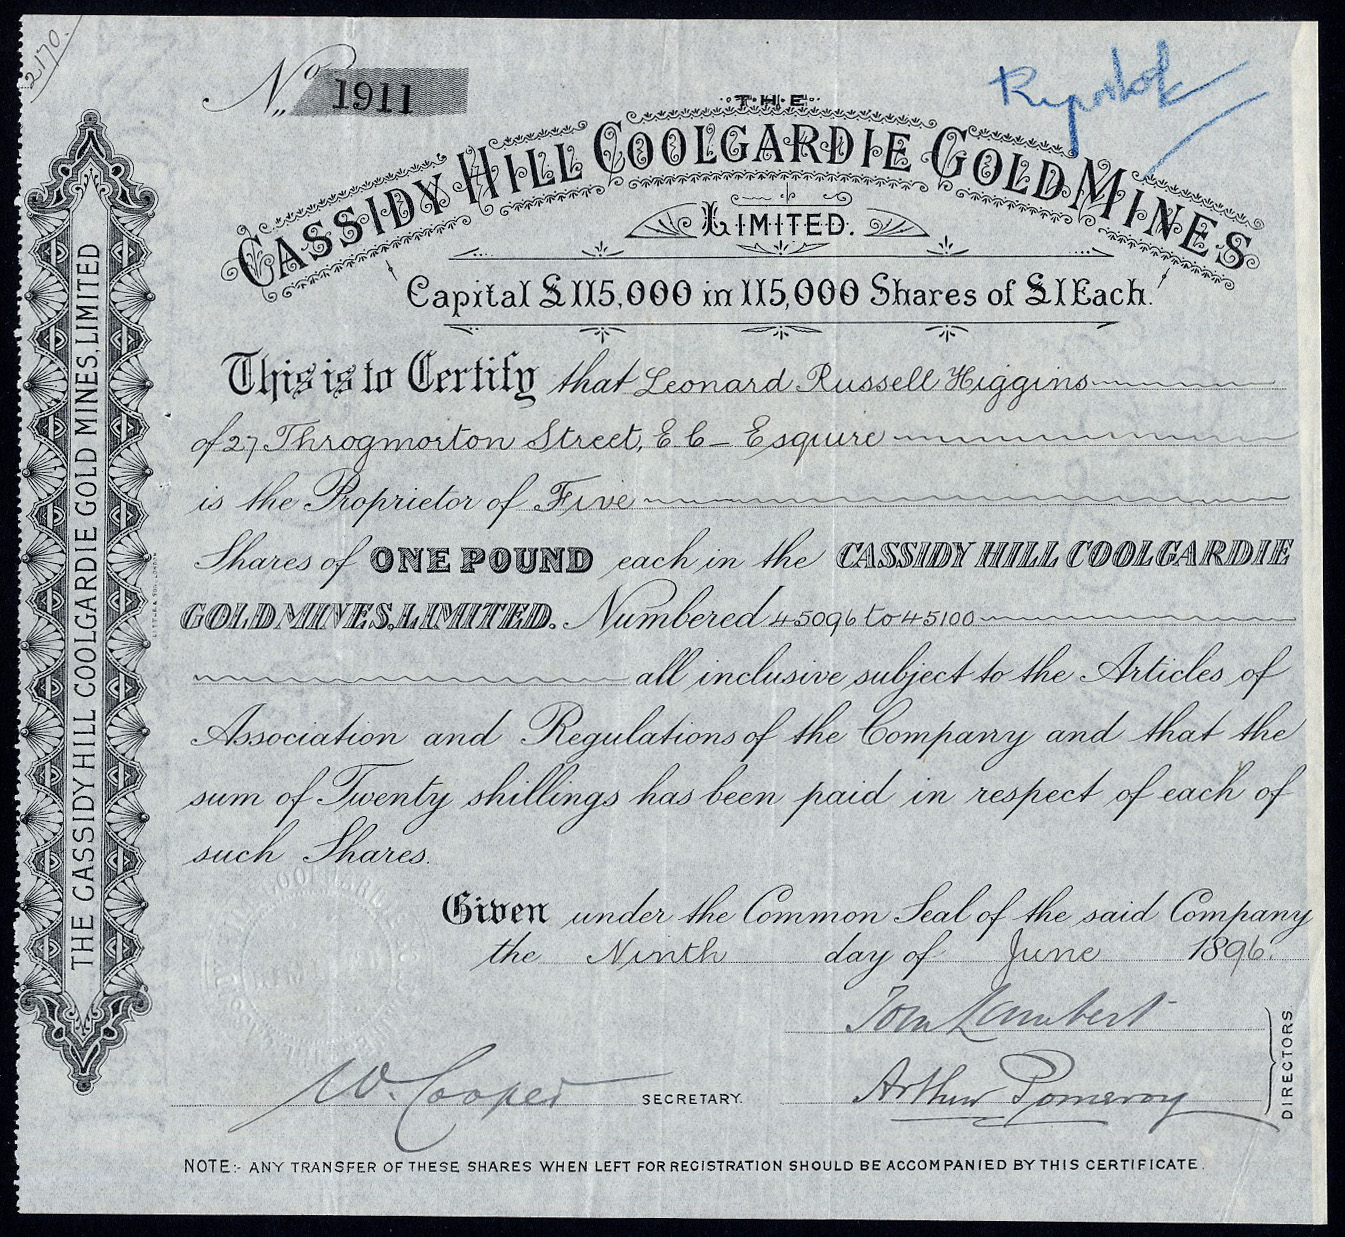 2170.
No 1911
THE
CASSIDY HILL COOLGARDIE GOLD MINES
LIMITED.
Capital £115,000 in 115,000 Shares of £1 Each.
This is to Certify that Leonard Russell Higgins
of 27 Throgmorton Street, E C - Esquire
is the Proprietor of Five
Shares of ONE POUND each in the CASSIDY HILL COOLGARDIE
GOLD MINES, LIMITED. Numbered 45096 to 45100
all inclusive subject to the Articles of
Association and Regulations of the Company and that the
sum of Twenty shillings has been paid in respect of each of
such Shares.
Given under the Common Seal of the said Company
the Ninth day of June 1896.
Tom Lambert
Arthur Pomeroy
DIRECTORS
W. Cooper SECRETARY.
NOTE:- ANY TRANSFER OF THESE SHARES WHEN LEFT FOR REGISTRATION SHOULD BE ACCOMPANIED BY THIS CERTIFICATE.
THE CASSIDY HILL COOLGARDIE GOLD MINES, LIMITED